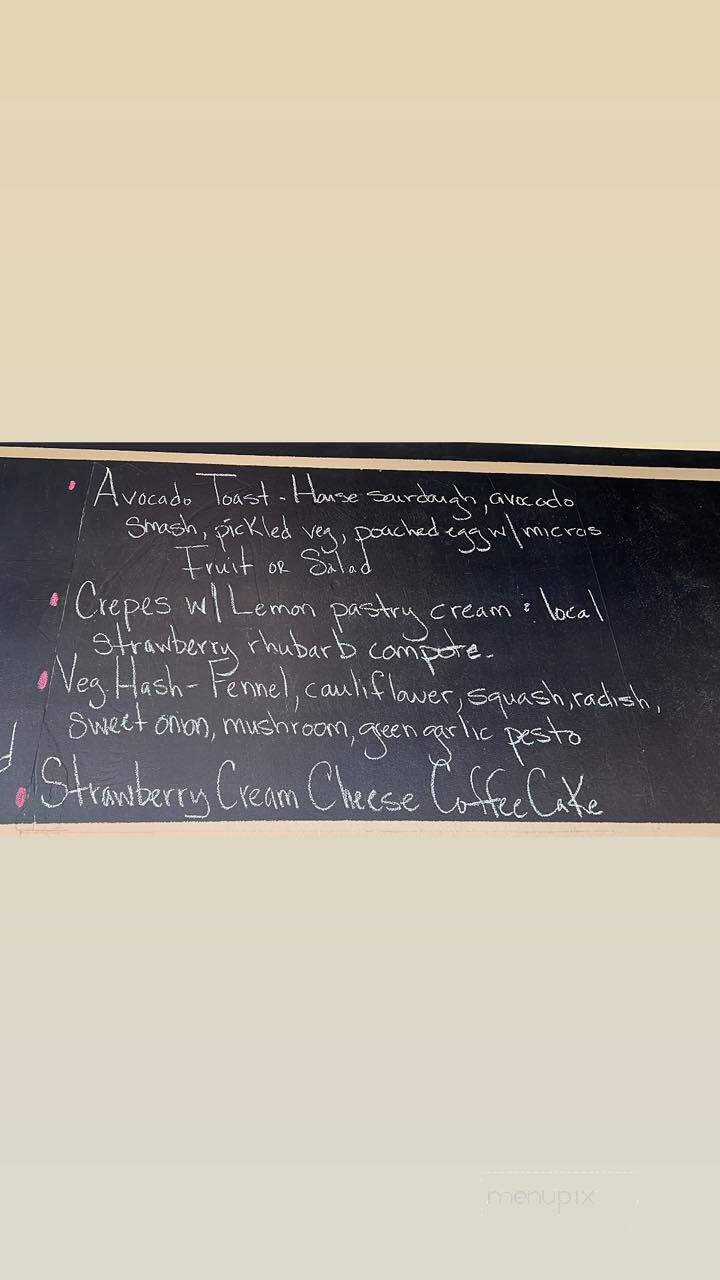 Avocado Toast - House sourdough, avocado
smash, pickled veg, poached egg w/ micros
Fruit or Salad
Crepes w/ Lemon pastry cream & local
strawberry rhubarb compote.
Veg. Hash - Fennel, cauliflower, squash, radish,
sweet onion, mushroom, green garlic pesto
d
Strawberry Cream Cheese Coffee Cake
menupix